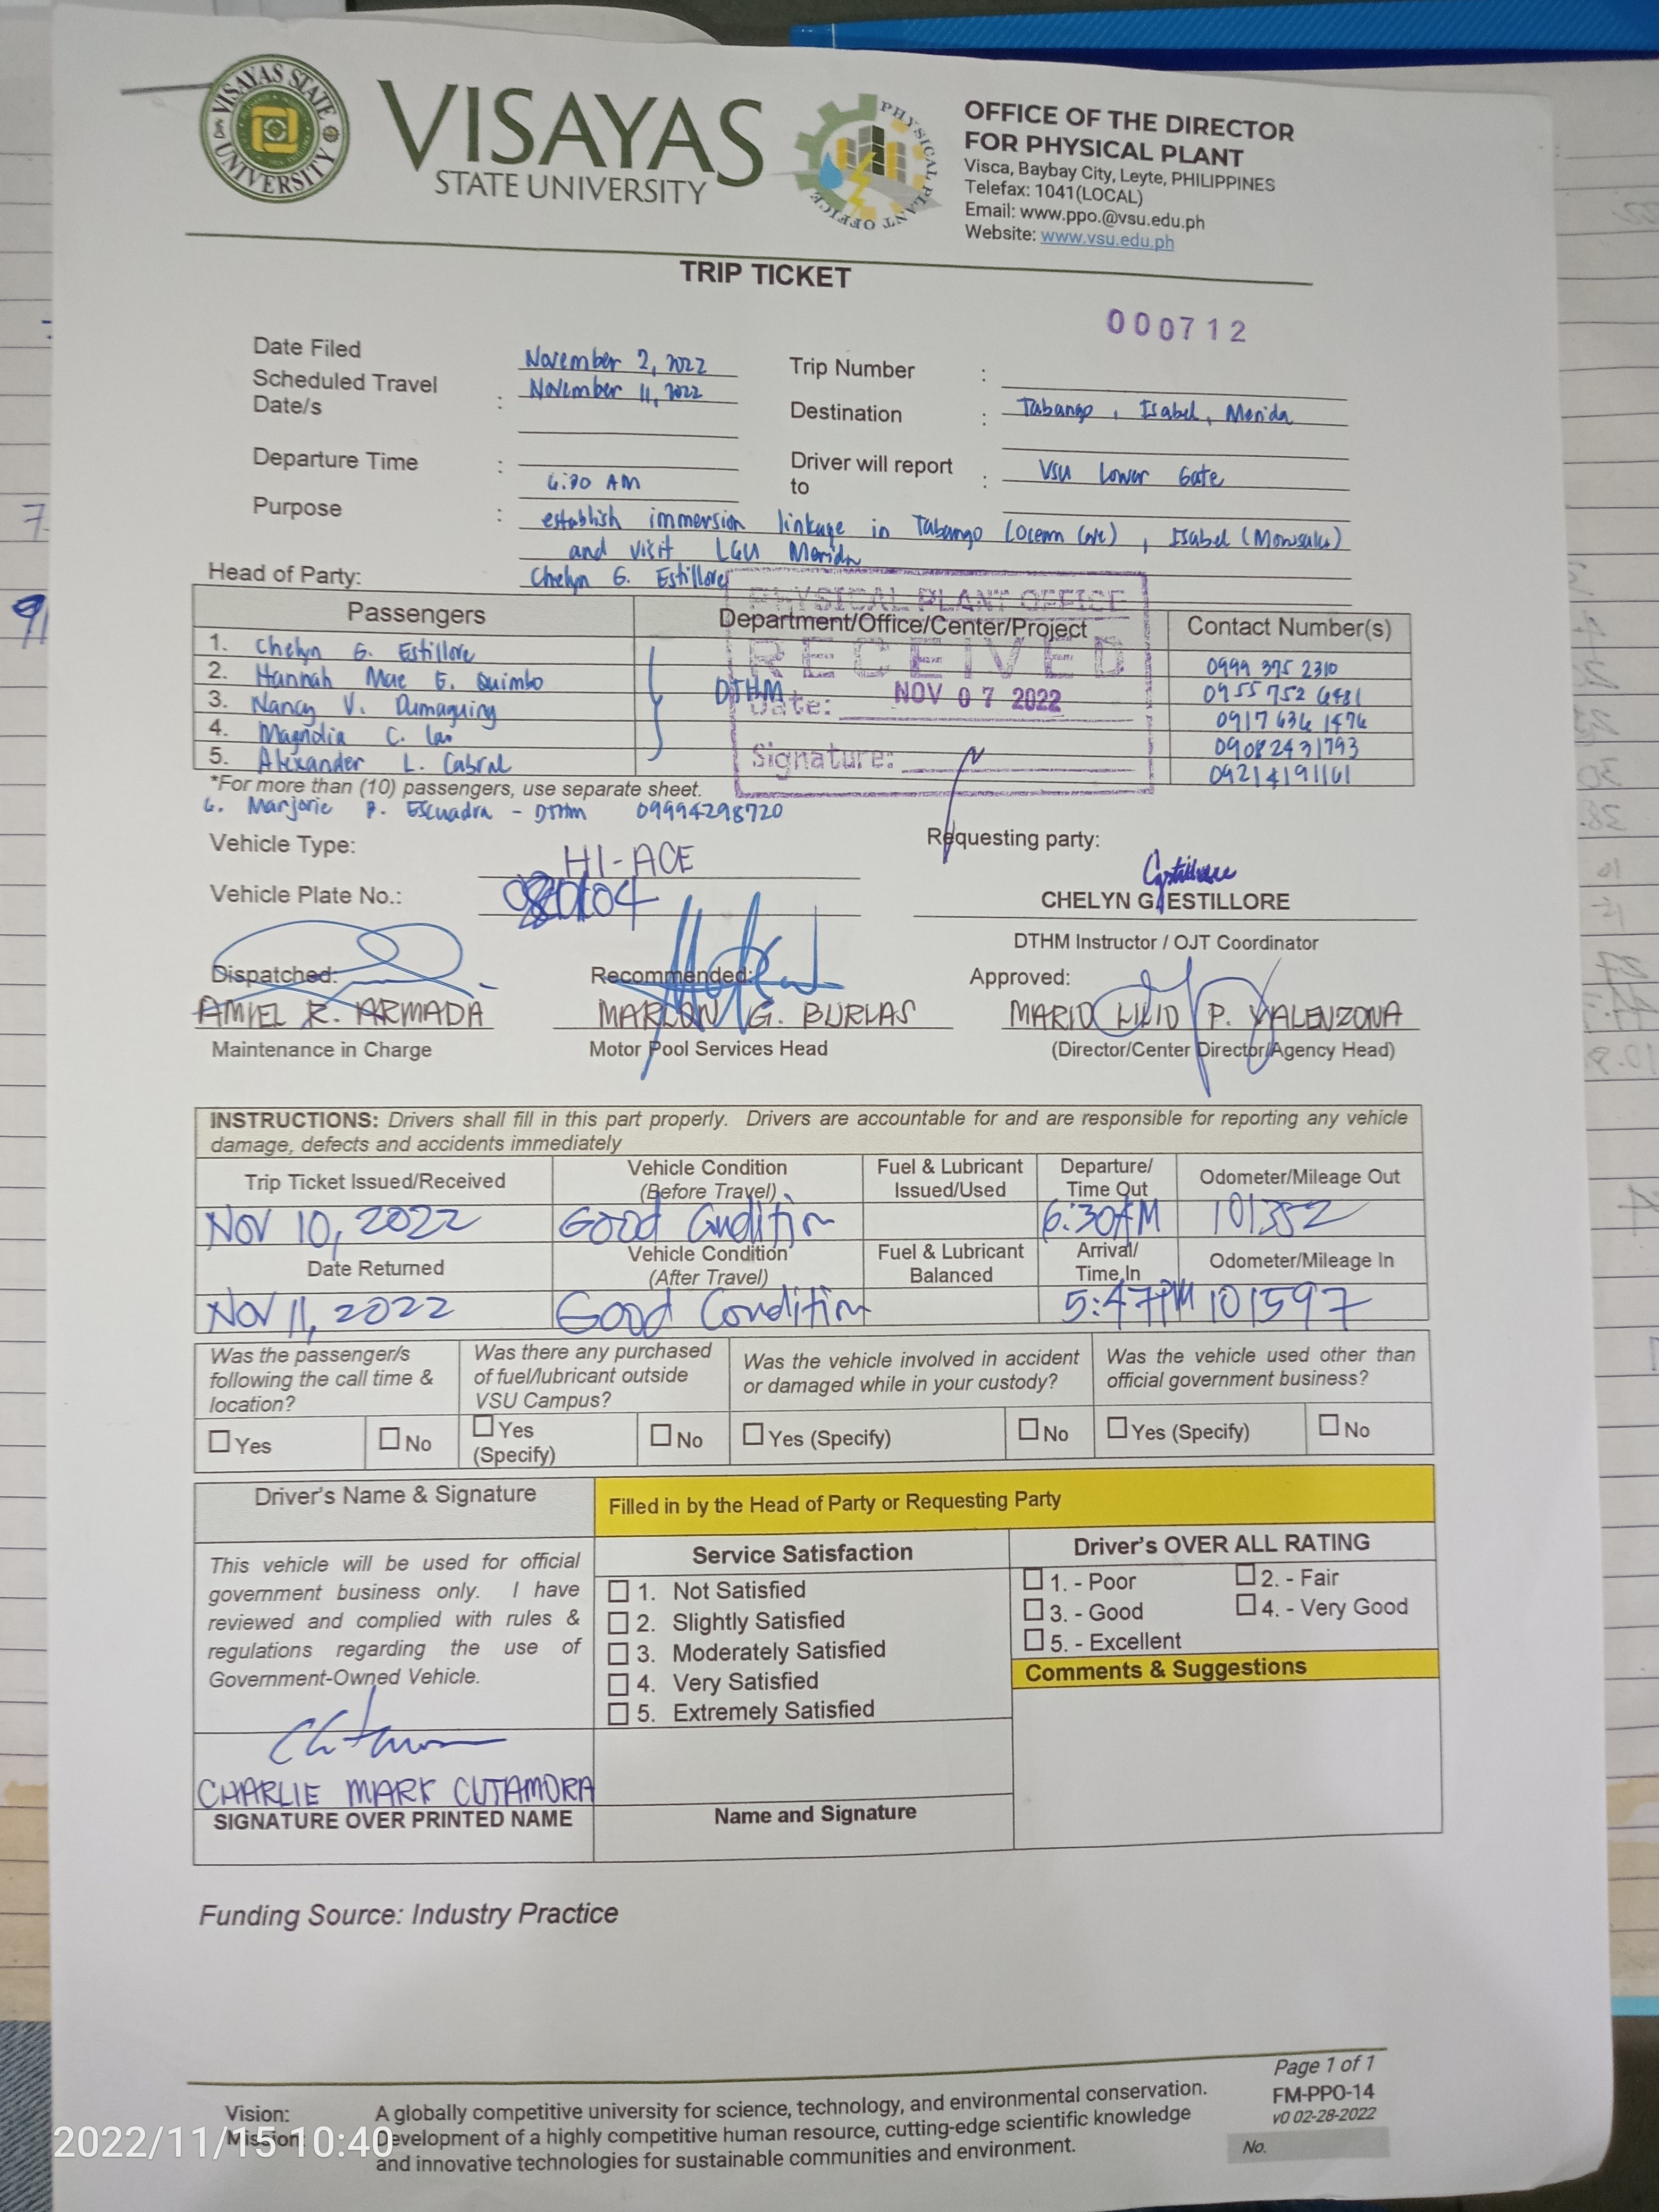 VISAYAS STATE UNIVERSITY
VISAYAS
STATE UNIVERSITY
PHYSICAL PLANT OFFICE
OFFICE OF THE DIRECTOR
FOR PHYSICAL PLANT
Visca, Baybay City, Leyte, PHILIPPINES
Telefax: 1041(LOCAL)
Email: www.ppo.@vsu.edu.ph
Website: www.vsu.edu.ph
TRIP TICKET
000712
Date Filed November 2, 2022 Trip Number :
Scheduled Travel Date/s : November 11, 2022 Destination : Tabango, Isabel, Merida
Departure Time : 6:30 AM Driver will report to : VSU Lower Gate
Purpose : establish immersion linkage in Tabango (Ocean), Isabel
and visit LGU Merida
Head of Party: Chelyn G. Estillore
Passengers Department/Office/Center/Project Contact Number(s)
1. Chelyn G. Estillore 0999 375 2310
2. Hannah Mae E. Quimbo DTHM 0955 752 6481
3. Nancy V. Dumaguing 0917 636 1476
4. Magnolia C. Lao 09082431793
5. Alexander L. Cabral 09214191161
PHYSICAL PLANT OFFICE
RECEIVED
Date: NOV 07 2022
Signature:
*For more than (10) passengers, use separate sheet.
6. Marjorie P. Escuadra - DTHM 09994298720
Vehicle Type: HI-ACE Requesting party:
Vehicle Plate No.:
CHELYN G. ESTILLORE
DTHM Instructor / OJT Coordinator
Dispatched: Recommended: Approved:
AMIEL R. ARMADA MARLON G. BURLAS MARIO LILIO P. VALENZONA
Maintenance in Charge Motor Pool Services Head (Director/Center Director/Agency Head)
INSTRUCTIONS: Drivers shall fill in this part properly. Drivers are accountable for and are responsible for reporting any vehicle
damage, defects and accidents immediately
Trip Ticket Issued/Received Vehicle Condition (Before Travel) Fuel & Lubricant Issued/Used Departure/ Time Out Odometer/Mileage Out
Nov 10, 2022 Good Condition 6:30AM 101352
Date Returned Vehicle Condition (After Travel) Fuel & Lubricant Balanced Arrival/ Time In Odometer/Mileage In
Nov 11, 2022 Good Condition 5:47PM 101597
Was the passenger/s following the call time & location? Was there any purchased of fuel/lubricant outside VSU Campus? Was the vehicle involved in accident or damaged while in your custody? Was the vehicle used other than official government business?
Yes No Yes (Specify) No Yes (Specify) No Yes (Specify) No
Driver's Name & Signature Filled in by the Head of Party or Requesting Party
This vehicle will be used for official
government business only. I have
reviewed and complied with rules &
regulations regarding the use of
Government-Owned Vehicle.
CHARLIE MARK CUTAMORA
SIGNATURE OVER PRINTED NAME
Service Satisfaction
1. Not Satisfied
2. Slightly Satisfied
3. Moderately Satisfied
4. Very Satisfied
5. Extremely Satisfied
Name and Signature
Driver's OVER ALL RATING
1. - Poor 2. - Fair
3. - Good 4. - Very Good
5. - Excellent
Comments & Suggestions
Funding Source: Industry Practice
Page 1 of 1
FM-PPO-14
v0 02-28-2022
No.
Vision: A globally competitive university for science, technology, and environmental conservation.
Mission: Development of a highly competitive human resource, cutting-edge scientific knowledge
and innovative technologies for sustainable communities and environment.
2022/11/15 10:40